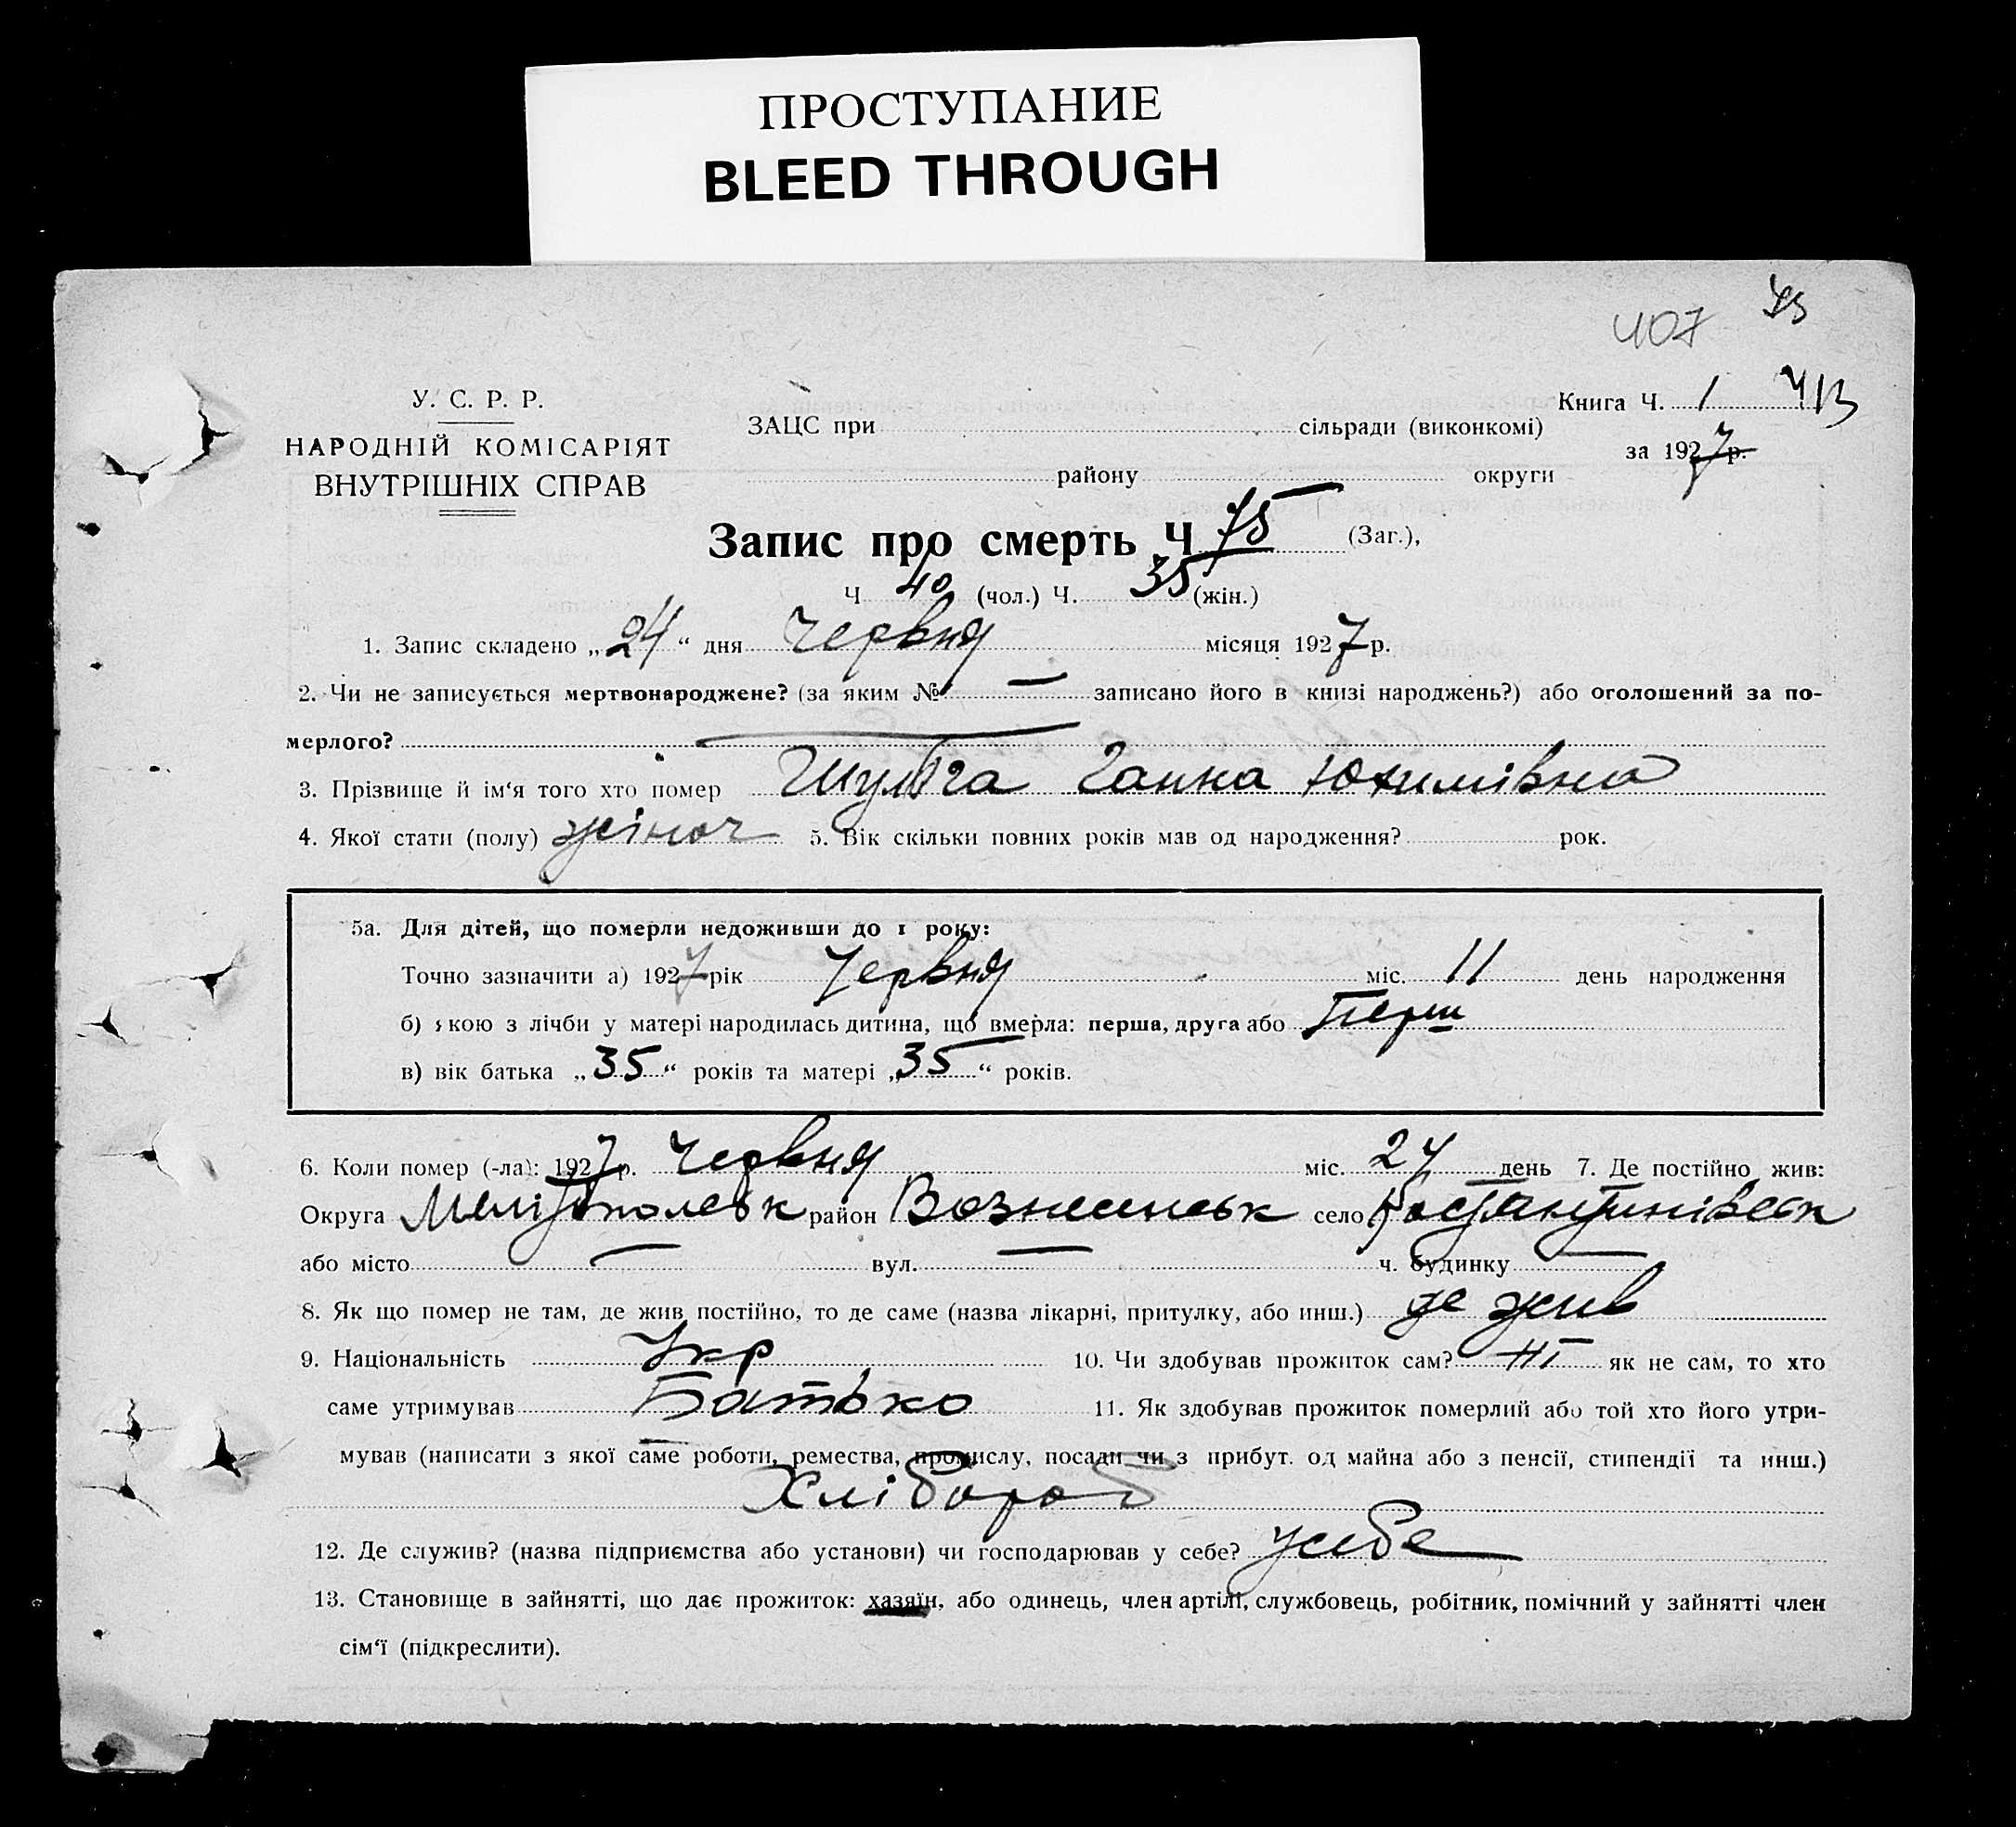 ПРОСТУПАНИЕ
BLEED THROUGH
407
У. С. Р. Р.
НАРОДНІЙ КОМІСАРІЯТ
ВНУТРІШНІХ СПРАВ
Книга Ч. 1 413
ЗАЦС при сільради (виконкомі)
за 1927 р.
району округи
Запис про смерть Ч 75 (Заг.),
Ч 40 (чол.) Ч. 35 (жін.)
1. Запис складено „24“ дня Червня місяця 1927 р.
2. Чи не записується мертвонароджене? (за яким № — записано його в книзі народжень?) або оголошений за по-
мерлого? —
3. Прізвище й ім‘я того хто помер Шульга Ганна Юхимівна
4. Якої стати (полу) жіноч 5. Вік скільки повних років мав од народження? рок.
5а. Для дітей, що померли недоживши до 1 року:
Точно зазначити а) 1927 рік Червня міс. 11 день народження
б) якою з лічби у матері народилась дитина, що вмерла: перша, друга або Перш
в) вік батька „35“ років та матері „35“ років.
6. Коли помер (-ла): 1927 р. Червня міс. 24 день 7. Де постійно жив:
Округа Мелітопольськ район Вознесенськ село Костянтинівськ
або місто — вул. — ч. будинку —
8. Як що помер не там, де жив постійно, то де саме (назва лікарні, притулку, або инш.) де жив
9. Національність Укр 10. Чи здобував прожиток сам? ні як не сам, то хто
саме утримував Батько 11. Як здобував прожиток померлий або той хто його утри-
мував (написати з якої саме роботи, ремества, промислу, посади чи з прибут. од майна або з пенсії, стипендії та инш.)
Хлібороб
12. Де служив? (назва підприємства або установи) чи господарював у себе? усебе
13. Становище в зайнятті, що дає прожиток: хазяїн, або одинець, член артілі, службовець, робітник, помічний у зайнятті член
сім‘ї (підкреслити).